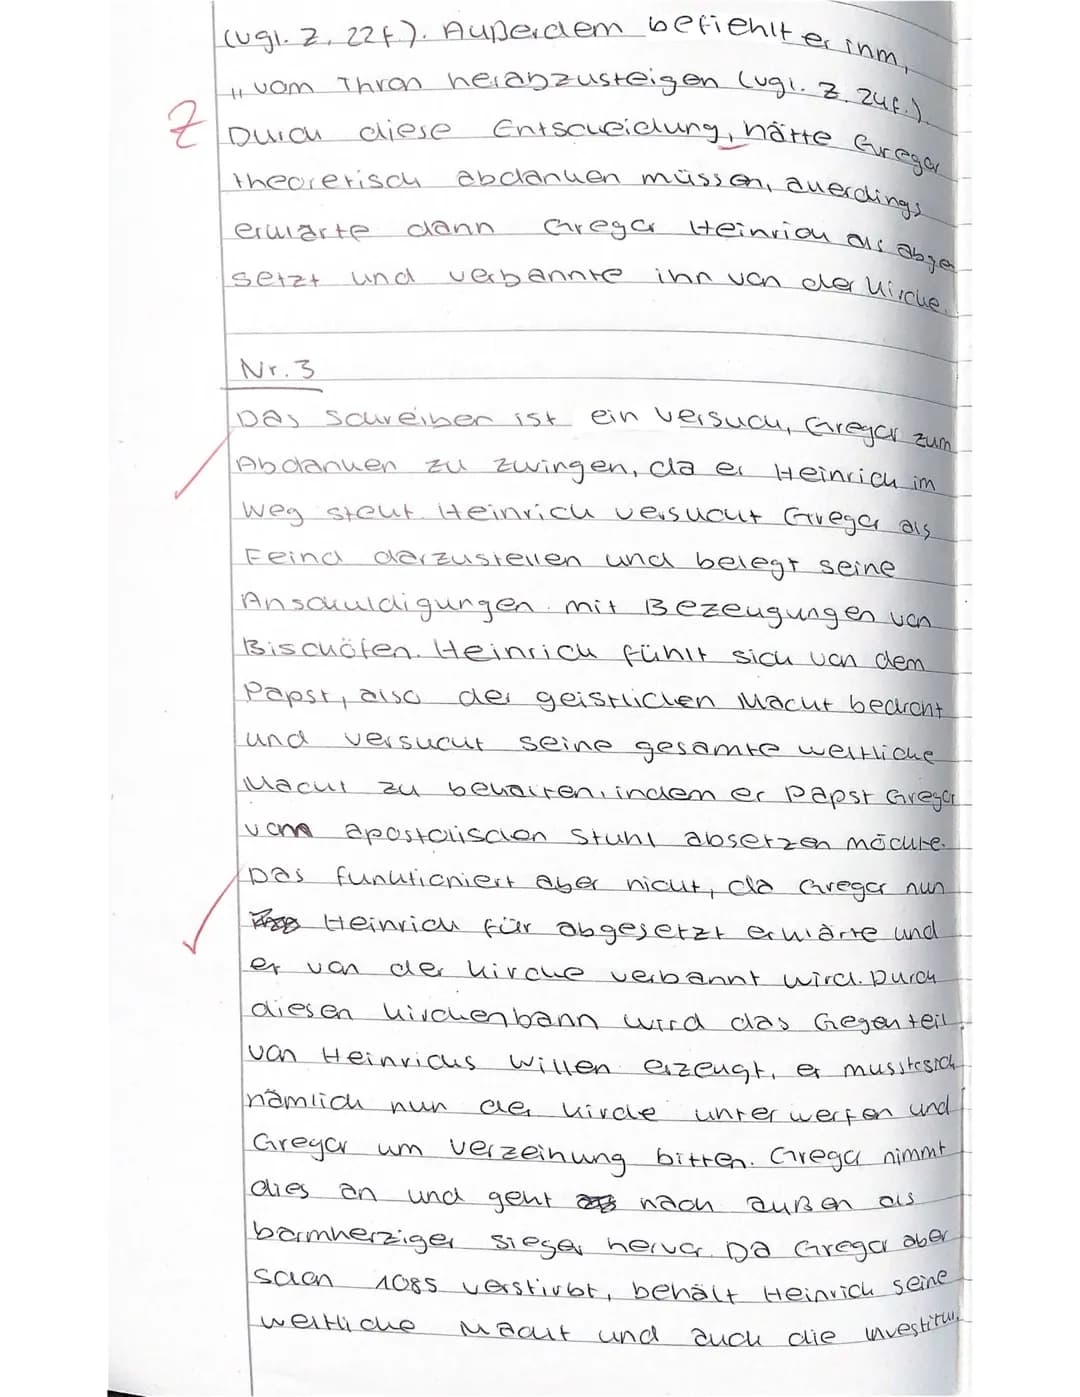 (vgl. Z. 22f). Außerdem befiehlt er ihm,
"vom Thron herabzusteigen (vgl. Z. 24f.).
Z
Durch diese Entscheidung, hätte Gregor
theoretisch abdanken müssen, allerdings
erklärte dann Gregor Heinrich als abge
setzt und verbannte ihn von der Kirche.
Nr. 3
Das Schreiben ist ein Versuch, Gregor zum
Abdanken zu zwingen, da er Heinrich im
Weg steht. Heinrich versucht Gregor als
Feind darzustellen und belegt seine
Anschuldigungen mit Bezeugungen von
Bischöfen. Heinrich fühlt sich von dem
Papst, also der geistlichen Macht bedroht
und versucht seine gesamte weltliche
Macht zu behalten, indem er Papst Gregor
vom apostolischen Stuhl absetzen möchte.
Das funktioniert aber nicht, da Gregor nun
Heinrich für abgesetzt erklärte und
er von der Kirche verbannt wird. Durch
diesen Kirchenbann wird das Gegenteil
von Heinrichs Willen erzeugt, er musste sich
nämlich nun der Kirche unterwerfen und
Gregor um Verzeihung bitten. Gregor nimmt
dies an und geht nach außen als
barmherziger Sieger hervor. Da Gregor aber
schon 1085 verstirbt, behält Heinrich seine
weltliche Macht und auch die Investitur